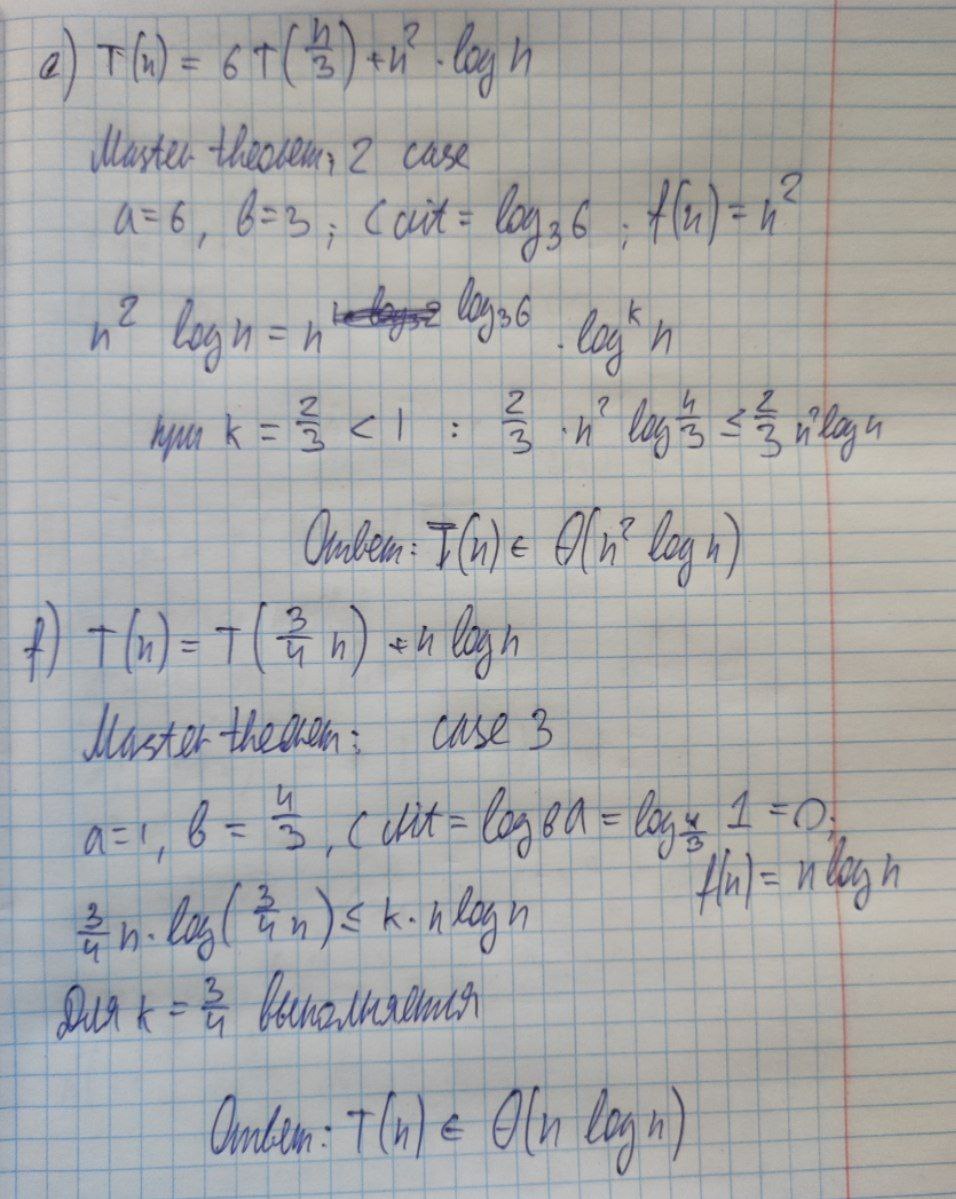 e) T(n) = 6T(n/3) + n² · log n
Master theorem: 2 case
a=6, b=3; C crit = log₃6; f(n) = n²
n² log n = n^(log₃6) · logᵏ n
при k = 2/3 < 1 : 2/3 · n² log n/3 ≤ 2/3 n² log n
Ответ: T(n) ∈ Θ(n² log n)
f) T(n) = T(3/4 n) + n log n
Master theorem: case 3
a=1, b = 4/3, C crit = log b a = log_(4/3) 1 = 0;
f(n) = n log n
3/4 n · log(3/4 n) ≤ k · n log n
Для k = 3/4 выполняется
Ответ: T(n) ∈ Θ(n log n)